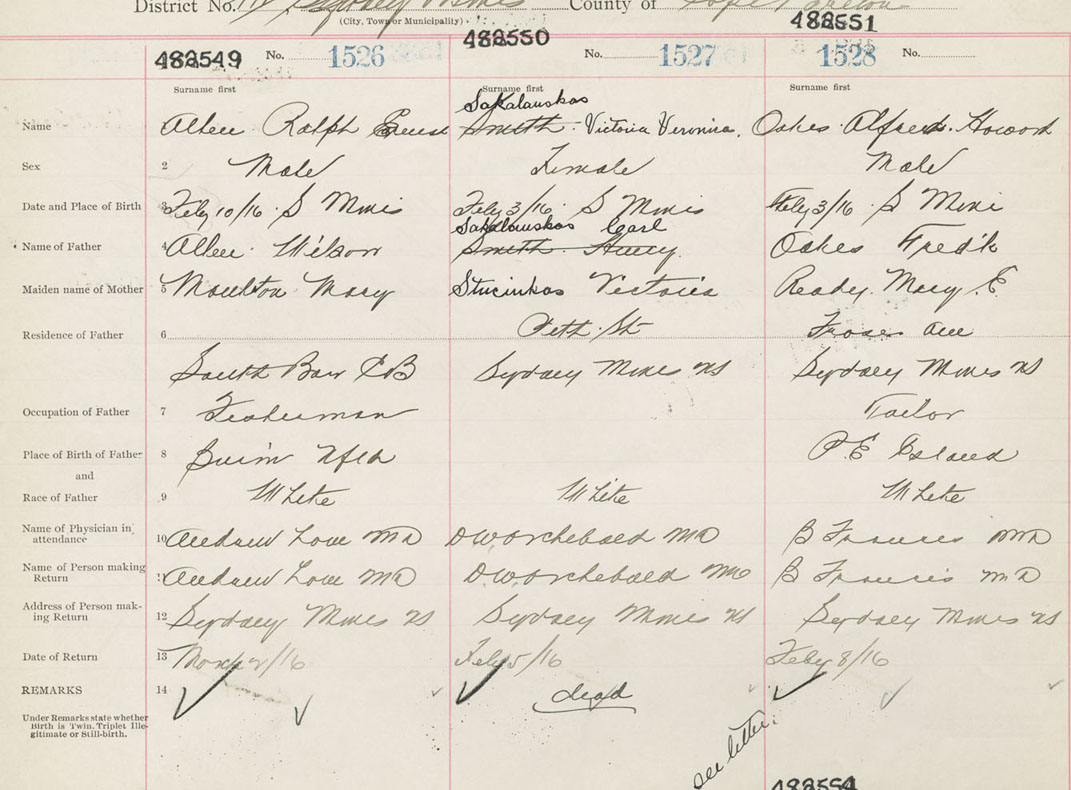 District No. Sydney Mines County of Cape Breton
(City, Town or Municipality)
482549 No. 1526 482550 No. 1527 482551 No. 1528
Surname first Surname first Surname first
Sakalauskas
Name Allen Ralph Ernest Smith Victoria Veronica, Oakes Alfred Howard
Sex 2 Male Female Male
Date and Place of Birth 3 Feby 10/16 S Mines Feby 3/16 S Mines Feby 3/16 S Mine
Sakalauskas Carl
Name of Father 4 Allen Wilson Smith Harry Oakes Fred'k
Maiden name of Mother 5 Moulton Mary Stucinkas Victoria Ready Mary E.
Residence of Father 6 Peth St Fraser Ave
South Bar CB Sydney Mines NS Sydney Mines NS
Occupation of Father 7 Fisherman Tailor
Place of Birth of Father 8 Burin Nfld P.E Island
and
Race of Father 9 White White White
Name of Physician in attendance 10 Andrew Love MD D W Archibald MD B Francis MD
Name of Person making Return 11 Andrew Love MD D W Archibald MD B Francis MD
Address of Person making Return 12 Sydney Mines NS Sydney Mines NS Sydney Mines NS
Date of Return 13 March 2/16 Feby 5/16 Feby 8/16
REMARKS 14 dead
Under Remarks state whether
Birth is Twin, Triplet Ille-
gitimate or Still-birth.
see letter.
482554